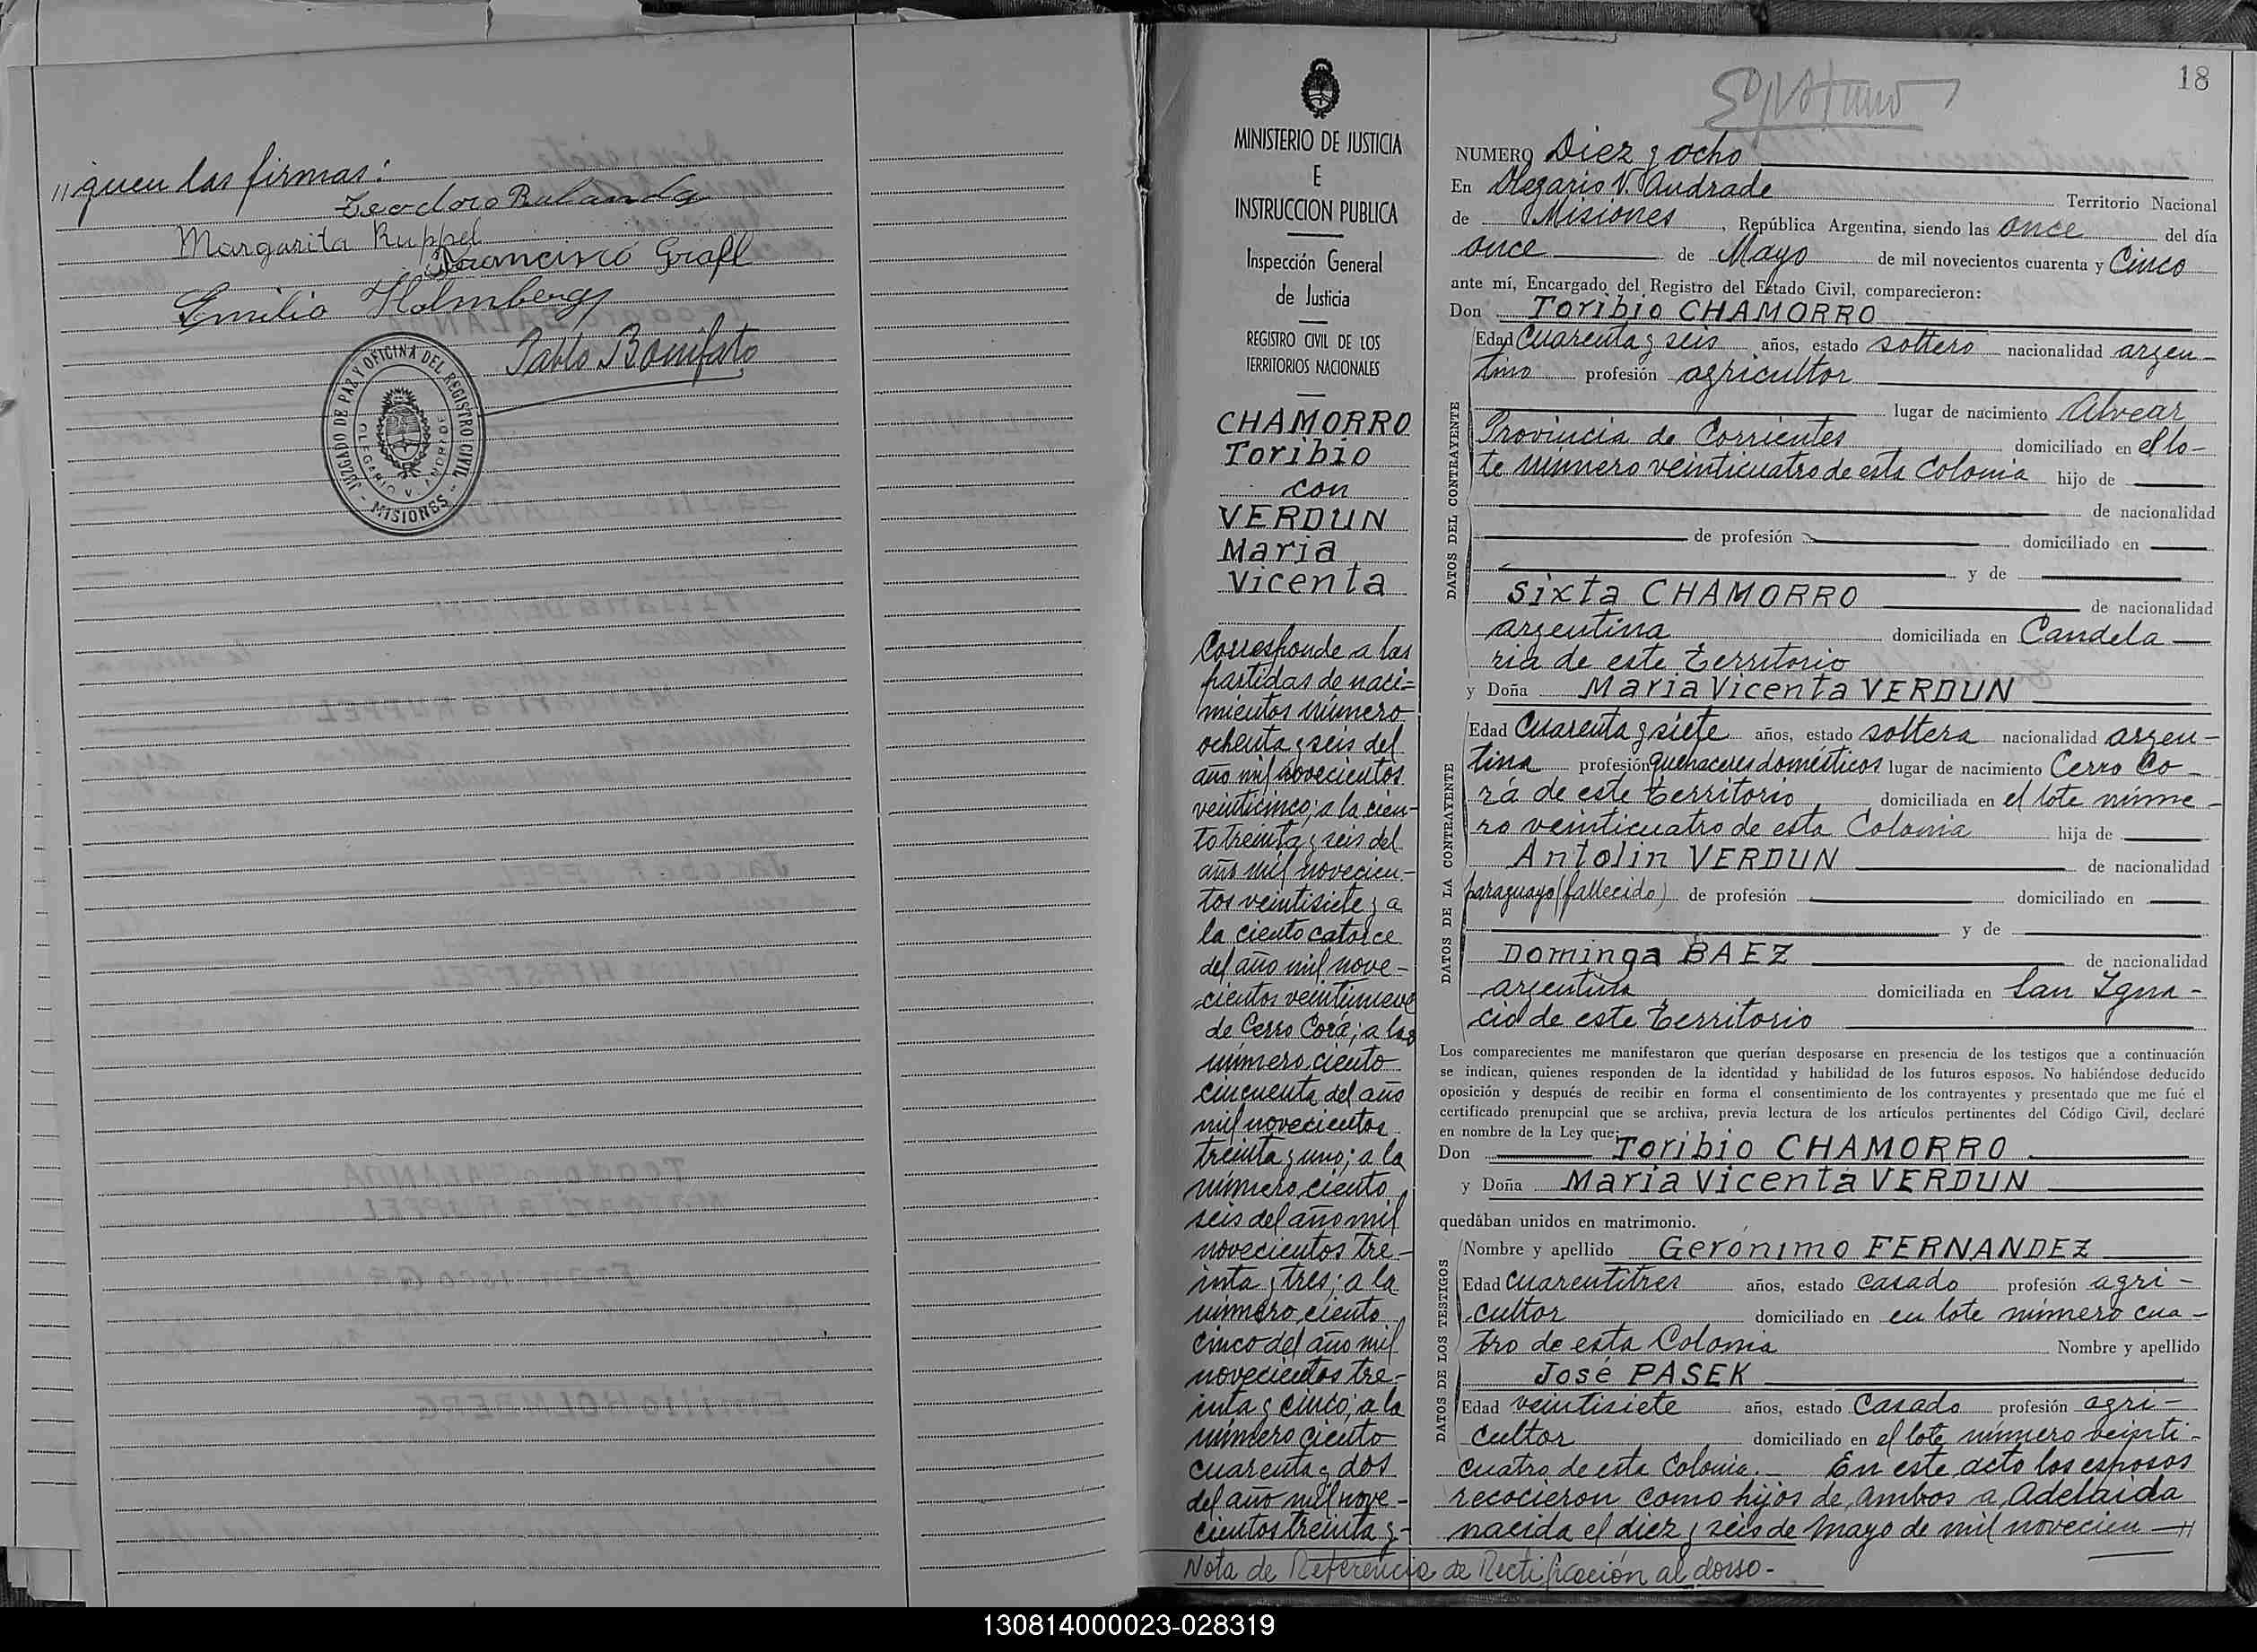 //guen las firmas:
Teodoro Balanda
Margarita Ruppel
Francisco Grall
Emilio Holmberg
Pablo Bonifato
JUZGADO DE PAZ Y OFICINA DEL REGISTRO CIVIL
OLEGARIO V. ANDRADE
- MISIONES -
MINISTERIO DE JUSTICIA
E
INSTRUCCION PUBLICA
Inspección General
de Justicia
REGISTRO CIVIL DE LOS
TERRITORIOS NACIONALES
CHAMORRO
Toribio
con
VERDUN
Maria
Vicenta
Corresponde a las
partidas de naci=
mientos número
ochenta y seis del
año mil novecientos
veinticinco; a la cien-
to treinta y seis del
año mil novecien-
tos veintisiete y a
la ciento catorce
del año mil nove-
cientos veintinueve
de Cerro Corá; a las
número ciento
cincuenta del año
mil novecientos
treinta y uno; a la
número ciento
seis del año mil
novecientos tre-
inta y tres; a la
número ciento
cinco del año mil
novecientos tre-
inta y cinco; a la
número ciento
cuarenta y dos
del año mil nove-
cientos treinta y-
18
NUMERO Diez y ocho
En Olegario V. Andrade Territorio Nacional
de Misiones, República Argentina, siendo las once del día
once de Mayo de mil novecientos cuarenta y Cinco
ante mí, Encargado del Registro del Estado Civil, comparecieron:
Don Toribio CHAMORRO
DATOS DEL CONTRAYENTE
Edad Cuarenta y seis años, estado soltero nacionalidad argen-
tino profesión agricultor
lugar de nacimiento Alvear
Provincia de Corrientes domiciliado en el lo-
te número veinticuatro de esta Colonia hijo de
de nacionalidad
de profesión domiciliado en
y de
Sixta CHAMORRO de nacionalidad
argentina domiciliada en Candela
ria de este territorio
y Doña Maria Vicenta VERDUN
DATOS DE LA CONTRAYENTE
Edad Cuarenta y siete años, estado soltera nacionalidad argen-
tina profesión quehaceres domésticos lugar de nacimiento Cerro Co-
rá de este territorio domiciliada en el lote núme-
ro veinticuatro de esta Colonia hija de
Antolin VERDUN de nacionalidad
paraguayo (fallecido) de profesión domiciliado en
y de
Dominga BAEZ de nacionalidad
argentina domiciliada en San Igna-
cio de este territorio
Los comparecientes me manifestaron que querían desposarse en presencia de los testigos que a continuación
se indican, quienes responden de la identidad y habilidad de los futuros esposos. No habiéndose deducido
oposición y después de recibir en forma el consentimiento de los contrayentes y presentado que me fué el
certificado prenupcial que se archiva, previa lectura de los artículos pertinentes del Código Civil, declaré
en nombre de la Ley que:
Don Toribio CHAMORRO
y Doña Maria Vicenta VERDUN
quedaban unidos en matrimonio.
DATOS DE LOS TESTIGOS
Nombre y apellido Gerónimo FERNANDEZ
Edad cuarentitres años, estado casado profesión agri-
cultor domiciliado en en lote número cua-
tro de esta Colonia Nombre y apellido
José PASEK
Edad veintisiete años, estado Casado profesión agri-
cultor domiciliado en el lote número veinti-
cuatro de esta Colonia.- En este acto los esposos
recocieron como hijos de ambos a Adelaida
nacida el diez y seis de Mayo de mil novecien-//
Nota de Referencia de Rectificación al dorso-
130814000023-028319